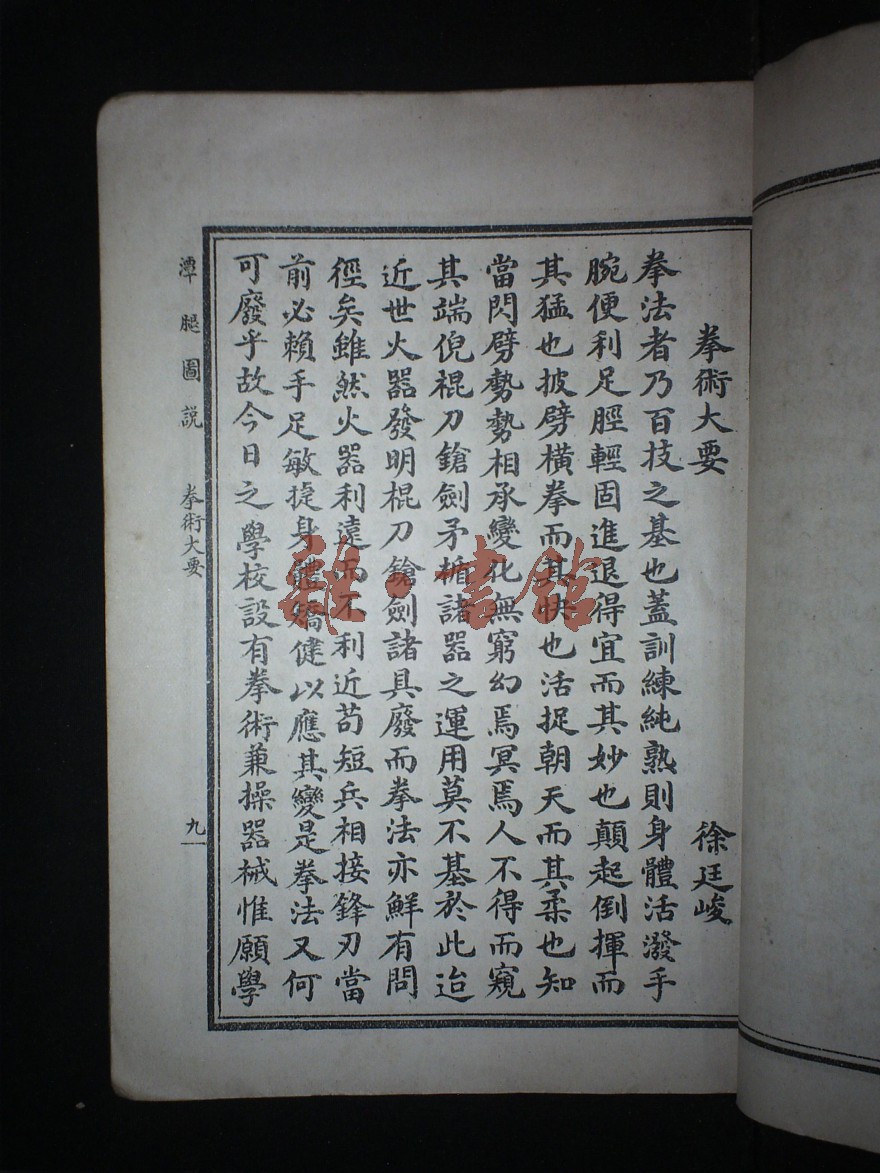 拳術大要　徐廷峻
拳法者乃百技之基也蓋訓練純熟則身體活潑手
腕便利足脛輕固進退得宜而其妙也顛起倒揮而
其猛也披劈橫拳而其快也活捉朝天而其柔也知
當閃劈勢勢相承變化無窮幻焉冥焉人不得而窺
其端倪棍刀鎗劍矛楯諸器之運用莫不基於此迨
近世火器發明棍刀鎗劍諸具廢而拳法亦鮮有問
徑矣雖然火器利遠而不利近苟短兵相接鋒刃當
前必賴手足敏捷身體矯健以應其變是拳法又何
可廢乎故今日之學校設有拳術兼操器械惟願學
潭腿圖說　拳術大要　九
雜·書館